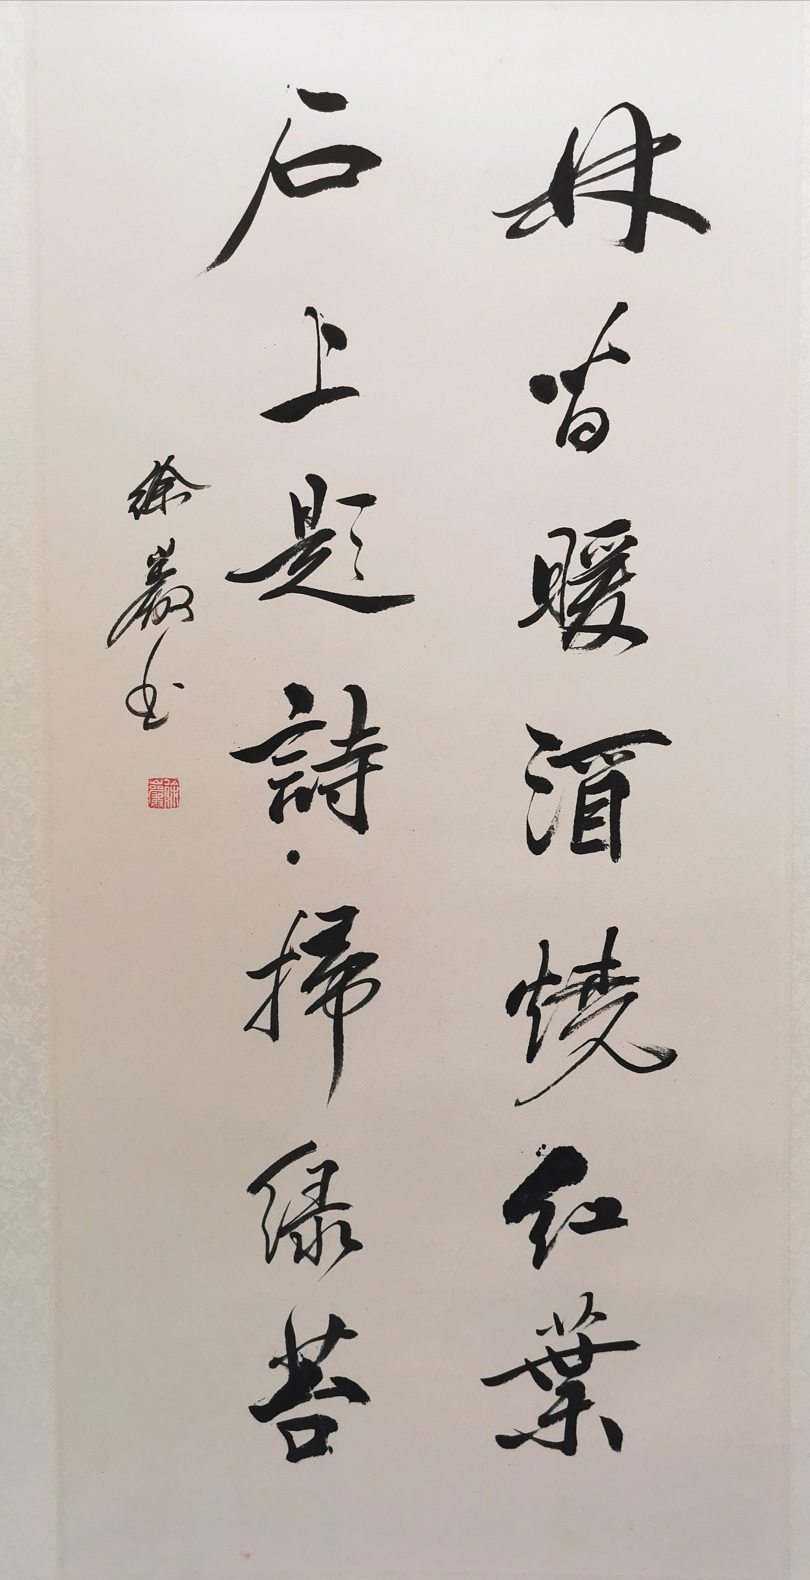 林間暖酒燒紅葉
石上題詩掃綠苔
徐巖書
徐巖